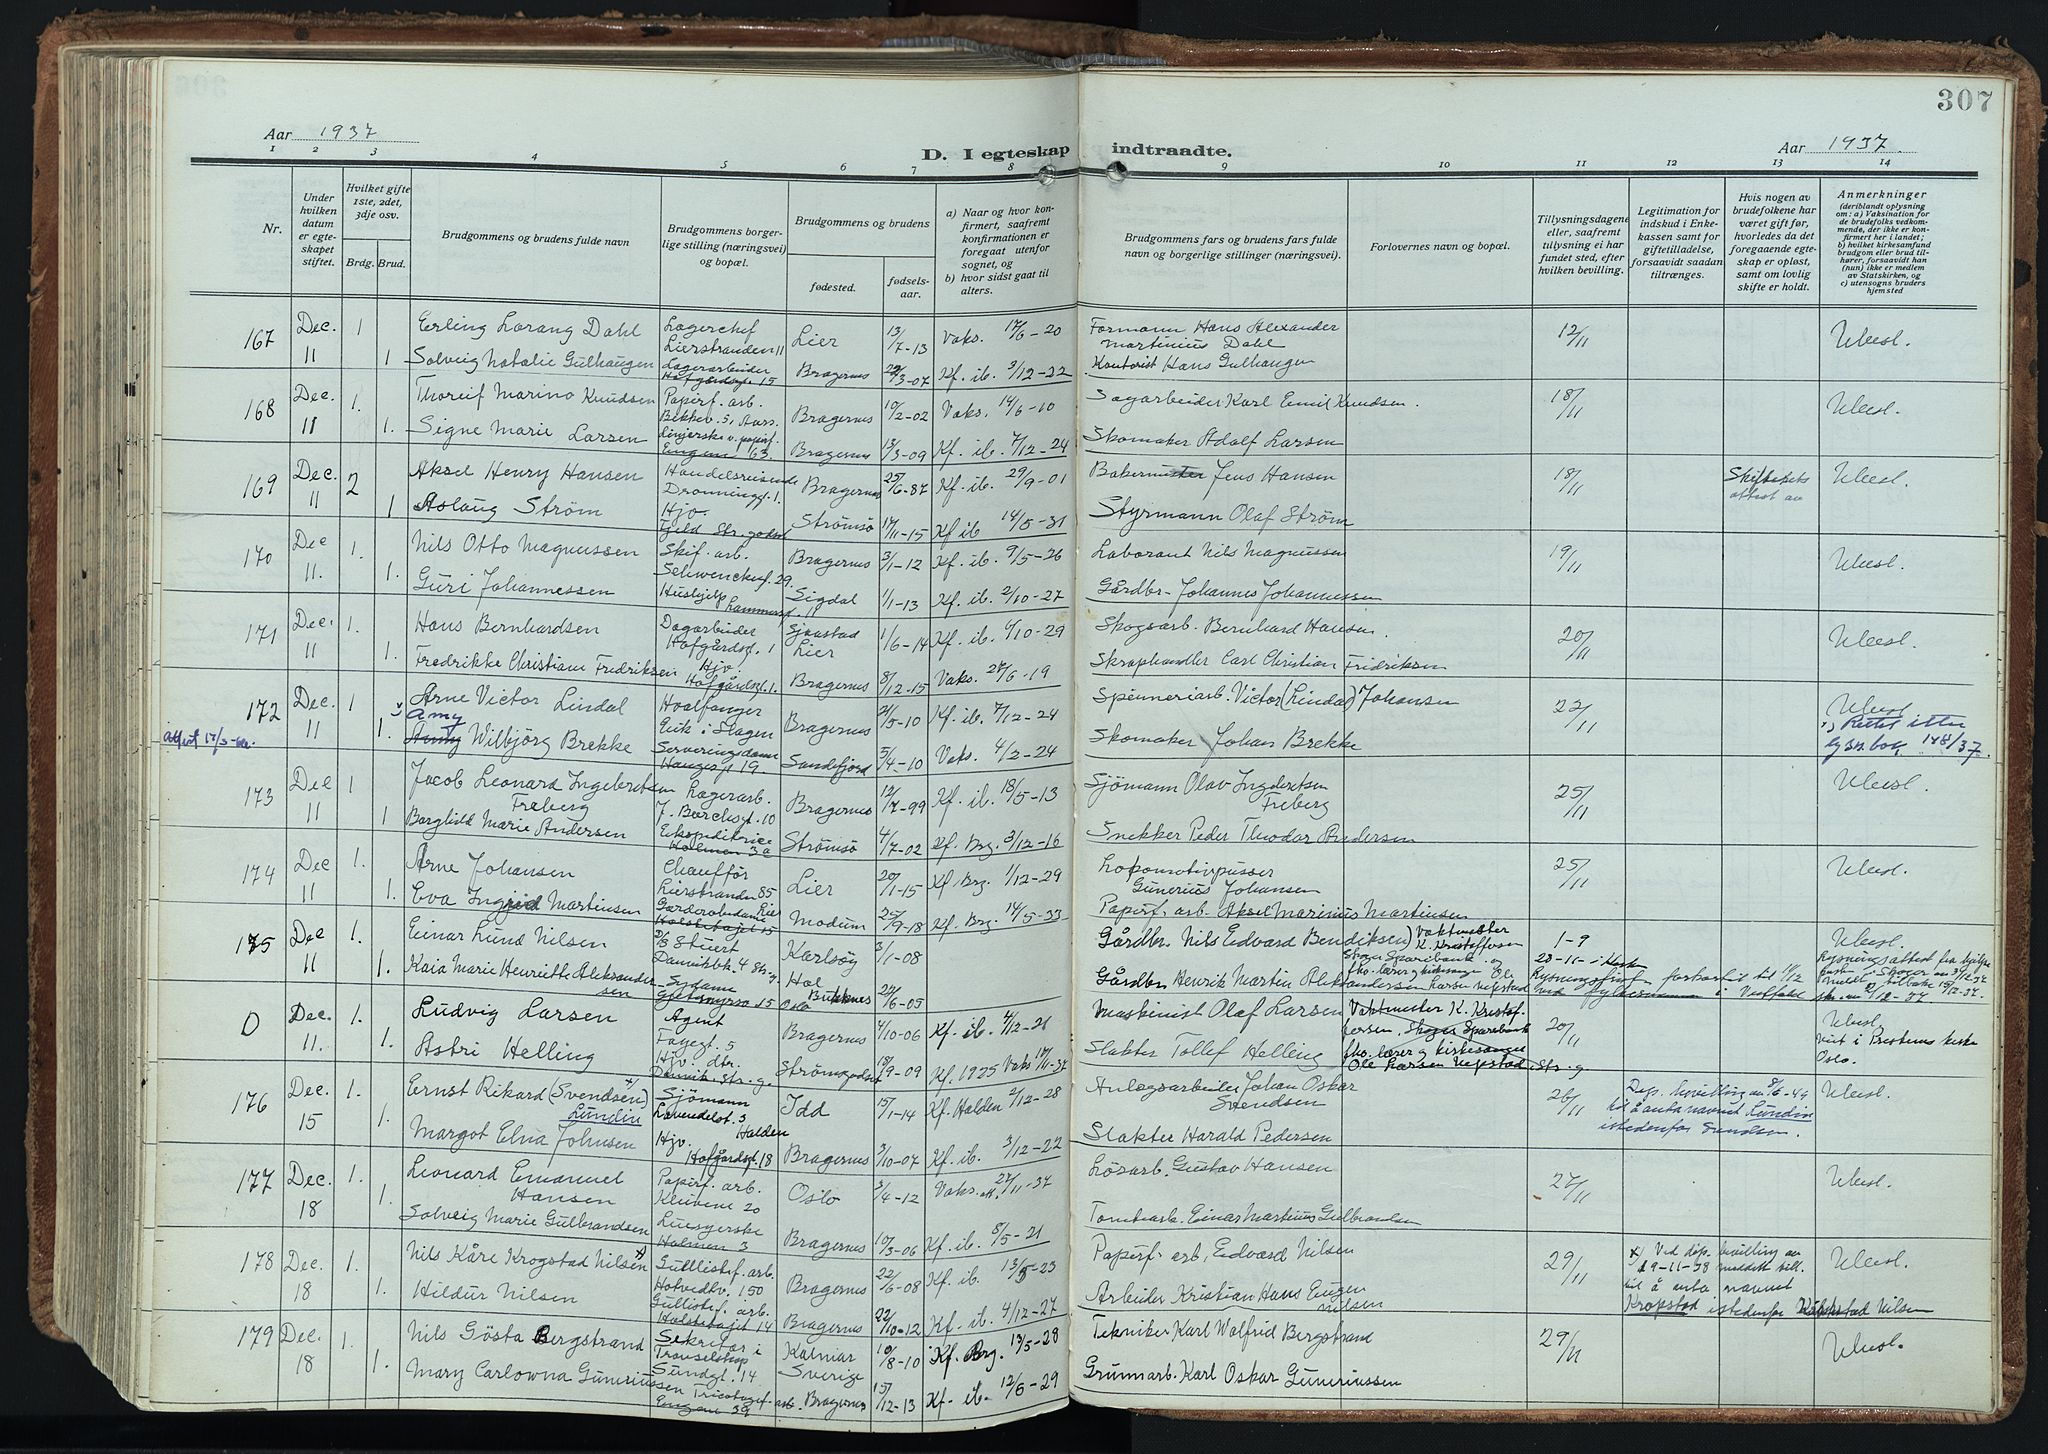 307
Aar 1937
D. I egteskap indtraadte.
Aar 1937.
1 2 3 4 5 6 7 8 9 10 11 12 13 14
Nr.
Under hvilken datum er egteskapet stiftet.
Hvilket gifte 1ste, 2det, 3dje osv.
Brdg. Brud.
Brudgommens og brudens fulde navn
Brudgommens borgerlige stilling (næringsvei) og bopæl.
Brudgommens og brudens
fødested.
fødselsaar.
a) Naar og hvor konfirmert, saafremt konfirmationen er foregaat utenfor sognet, og
b) hvor sidst gaat til alters.
Brudgommens fars og brudens fars fulde navn og borgerlige stillinger (næringsvei).
Forlovernes navn og bopæl.
Tillysningsdagene eller, saafremt tulysning ei har fundet sted, efter hvilken bevilling.
Legitimation for indskud i Enkekassen samt for giftetilladelse, forsaavidt saadan tiltrænges.
Hvis nogen av brudefolkene har været gift før, hvorledes da det foregaaende egteskap er opløst, samt om lovlig skifte er holdt.
Anmerkninger
(deriblandt oplysning om: a) Vaksination for de brudefolks vedkommende, der ikke er konfirmert her i landet; b) hvilket kirkesamfund brudgom eller brud tilhører, forsaavidt han (hun) ikke er medlem av Statskirken, og c) utensogns bruders hjemsted
167 Dec. 11 1 Erling Lorang Dahl Lagerchef Lierstranden 11 Lier 13/7-13 Vaks. 17/6-20 Formann Hans Alexander Martinius Dahl 12/11 Ulesl.
1 Solveig Natalie Gulhaugen Lagerarbeider Hofgårdsg. 15 Bragernes 22/3-07 Kf. ib. 3/12-22 Kontorist Hans Gulhaugen
168 Dec. 11 1. Thoreif Marino Knudsen Papirf. arb. Bragernes 10/2-02 Vaks. 14/6-10 Sagarbeider Karl Emil Knudsen. 18/11 Ulesl.
1. Signe Marie Larsen Bragernes 13/3-09 Kf. ib. 7/12-24 Skomaker Adolf Larsen
169 Dec. 11 2 Aksel Henry Hansen Handelsreisende Dronningg. 1. Bragernes 25/6-87 Kf. ib. 29/9-01 Bakermester Jens Hansen 18/11 Ulesl.
1 Aslaug Strøm Hjv. Strømsø 17/11-15 Kf ib 14/5-31 Styrmann Olaf Strøm
170 Dec 11. 1. Nils Otto Magnussen Skif. arb. Schwenckesg. 29. Bragernes 3/1-12 Kf. ib. 9/5-26 Laborant Nils Magnussen 19/11 Ulesl.
1. Guri Johannessen Hushjelp Sigdal 1/1-13 Kf. ib. 2/10-27 Gårdbr. Johannes Johannessen
171 Dec. 11 1. Hans Bernhardsen Dagarbeider Hofgårdsg. 1 Sjaastad Lier 1/6-14 Kf. ib. 4/10-29 Skogsarb. Bernhard Hansen. 20/11 Ulesl.
1. Fredrikke Christiane Fredriksen Hjv. Hofgårdsg. 1. Bragernes 8/12-15 Vaks. 27/6-19 Skraphandler Carl Christian Fridriksen
172 Dec. 11 1 Arne Victor Lindal Hvalfanger Eik i Slagen Bragernes 21/5-10 Kf. ib. 7/12-24 Spinneriarb. Victor (Lindal) Johansen 22/11 Ulesl.
1. Amy Wilbjörg Brekke Serveringsdame Haugesg. 19. Sandefjord 5/4-10 Vaks. 4/2-24 Skomaker Johan Brekke Rettet efter lysn.bok 178/37.
173 Dec 11 1 Jacob Leonard Ingebretsen Freberg Lagerarb. J. Borchsgt. 10 Bragernes 12/7-99 Kf. ib. 18/5-13 Sjömann Olav Ingebretsen Freberg 25/11 Ulesl.
1 Borghild Marie Andersen Ekspeditrice Holmen 3a Strømsø 4/7-02 Kf. Brg. 3/12-16 Snekker Peder Theodor Andersen
174 Dec 11 1. Arne Johansen Chaufför Lierstranden 85 Lier 20/1-15 Kf. Brg. 1/12-29 Lokomotivpusser Gunerius Johansen 25/11 Ulesl.
1. Eva Ingrid Martinsen Garderobedame Modum 25/9-18 Kf. Brg. 14/5-33 Papirf. arb. Aksel Marinius Martinsen
175 Dec 11 1. Einar Lund Nilsen Stuert Danvikbk. 4 Karlsøy 3/1-08 Gårdbr. Nils Edvard Bendiksen Vaktmester K. Kristoffersen Skoger Sparebank og fhv. lærer og kirkesanger Ole Larsen Vefstad 1-9 Ulesl.
1. Kaia Marie Henriette Aleksandersen Sydame Hol 22/6-05 Gårdbr. Henrik Martin Aleksandersen
D Dec. 11. 1. Ludvig Larsen Agent Fayegt. 5 Oslo Bragernes 4/10-06 Kf. ib. 4/12-21 Maskinist Olaf Larsen Vaktmester K. Kristoffersen, Skoger Sparebank fhv. lærer og kirkesanger Ole Larsen Vefstad, Str.g. 20/11 Ulesl. viet i Oslo.
1. Astri Helling Hjv. dtr. Strømsgodset 18/9-09 Kf. 1925 Vaks 17/11-37 Slakter Tollef Helling
176 Dec. 15 1. Ernst Rikard (Svendsen) Lundin Sjömann Lavendelst. 3 Halden Idd 15/1-14 Kf. Halden 2/12-28 Anlegsarbeider Johan Oskar Svendsen 26/11 Dep. bevilling av 8/6-49 til å anta navnet Lundin istedenfor Svendsen. Ulesl.
Margot Elna Johnsen Hjv. Hofgårdsg. 18 Bragernes 3/10-07 Kf. ib. 3/12-22 Slakter Harald Pedersen
177 Dec. 18 1. Leonard Emanuel Hansen Papirf. arb. Kleivene 20 Oslo 3/4-12 Vaks. 27/11-37 Lösarb. Gustav Hansen 27/11 Ulesl.
1. Solveig Marie Gulbrandsen Holmen 3 Bragernes 10/3-06 Kf. ib. 8/5-21 Tomtearb. Einar Martinius Gulbrandsen
178 Dec. 18 1. Nils Kåre Krogstad Nilsen Gullistef. arb. Hotvedtv. 150 Bragernes 22/6-08 Kf. ib. 13/5-23 Papirf. arb. Edvard Nilsen 29/11 x) Ved dep. bevilling av 19-11-38 meddelt till. til å anta navnet Krogstad istedenfor Krogstad Nilsen Ulesl.
1. Hildur Nilsen Gullistef. arb. Bragernes 22/10-12 Kf. ib. 4/12-27 Arbeider Kristian Hans Eugen Nilsen
179 Dec. 18 1. Nils Gösta Bergstrand Sekretær i Travselskap Sundgt. 14 Kalmar Sverige 10/8-10 Kf. Brg. 13/5-28 Tekniker Karl Wolfrid Bergstrand 29/11 Ulesl.
1. Mary Carlowna Gunerinssen Tricotagef. arb. Engene 39 Bragernes 15/12-13 Kf. ib. 12/6-29 Grunnarb. Karl Oskar Gunerinssen